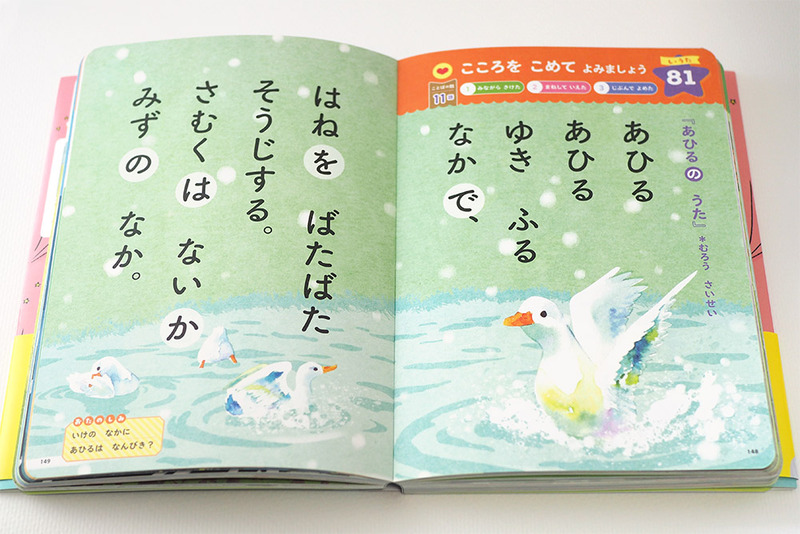 こころを こめて よみましょう
しうた
81
ことばの数
11回
1 みながら さけた
2 まねして いえた
3 じぶんで よめた
『あひるの うた』 *むろう さいせい
あひる
あひる
ゆき ふる
なかで、
148
はねを ばたばた
そうじする。
さむくは ないか
みずの なか。
おたのしみ
いけの なかに
あひるは なんびき?
149